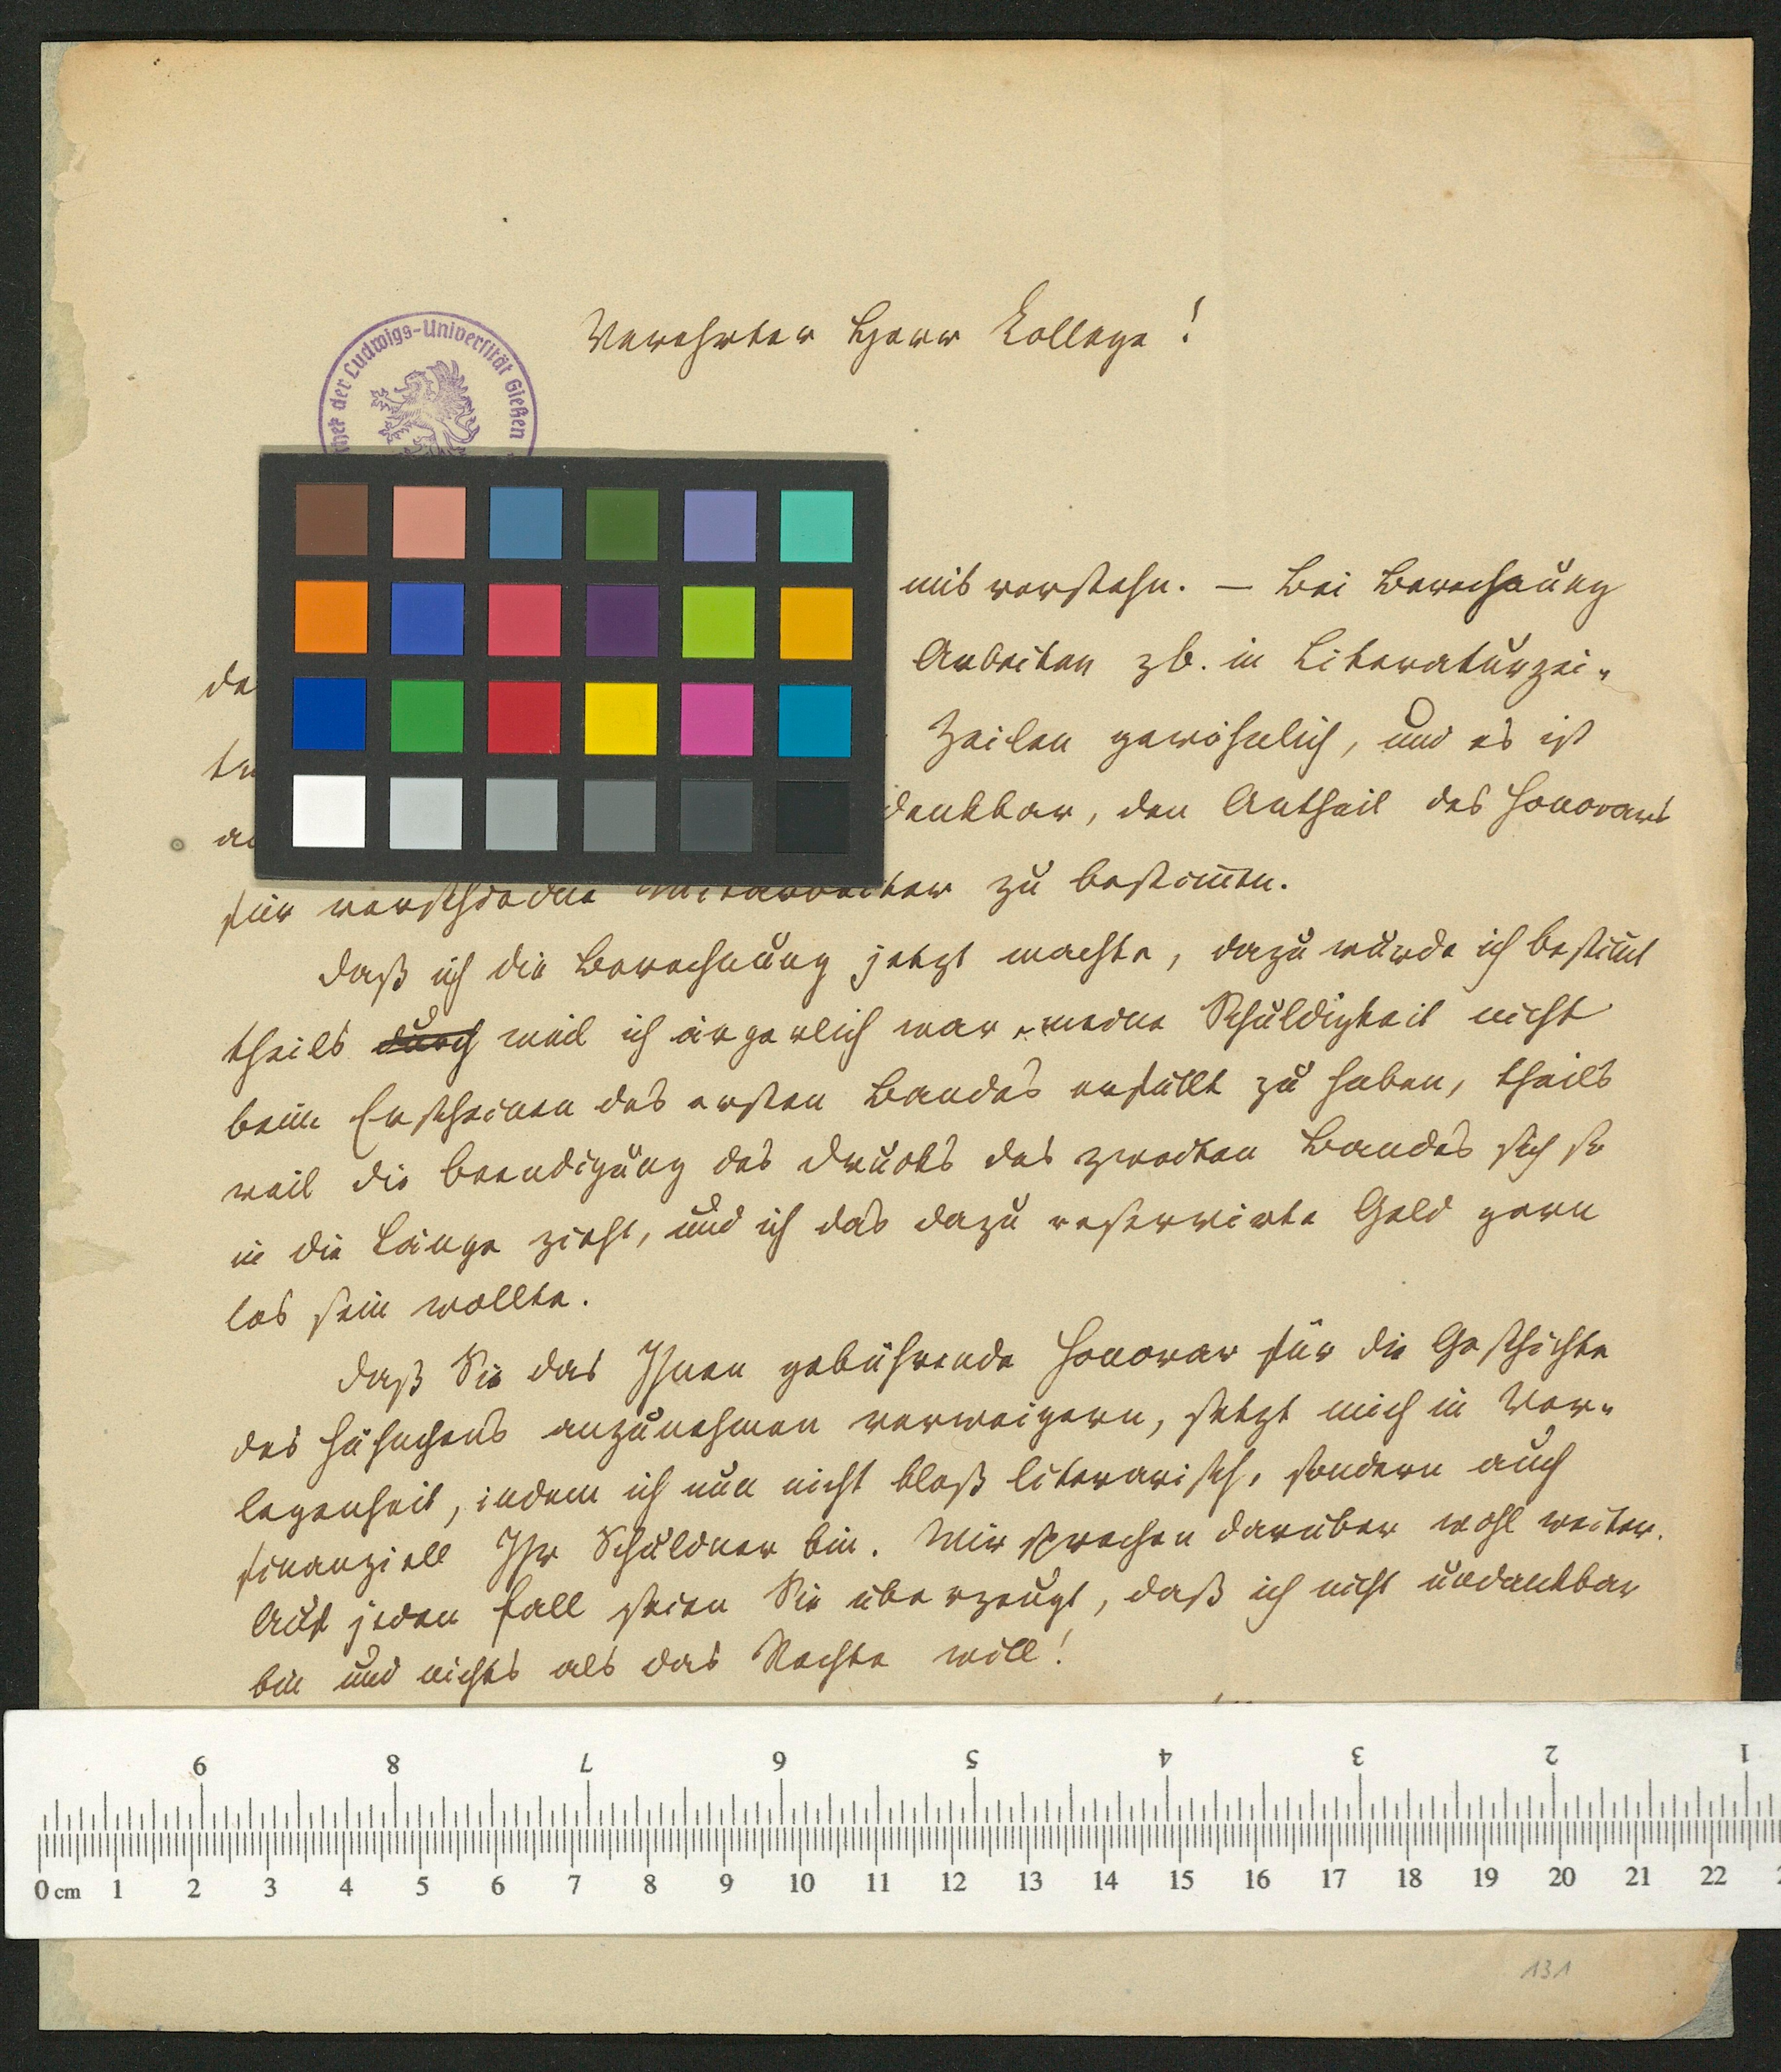 Verehrter Herr Kollege!
der Ludwigs-Universität Gießen
misverstehn. — Bei Berechnung
de
Arbeiten zb. in Literaturzei-
Zeilen gewöhnlich, und es ist
denkbar, den Antheil des Honorars
für verschiedne Mitarbeiter zu bestimen.
Daß ich die Berechnung jetzt machte, dazu wurde ich bestimt
theils durch weil ich ärgerlich war meine Schuldigkeit nicht
beim Erscheinen des ersten Bandes erfüllt zu haben, theils
weil die Beendigung des Drucks des zweiten Bandes sich so
in die Länge zieht, und ich das dazu reservirte Geld gern
los sein wollte.
Daß Sie das Ihnen gebührende Honorar für die Geschichte
des Hühnchens anzunehmen verweigern, setzt mich in Ver-
legenheit, indem ich nun nicht bloß literarisch, sondern auch
finanziell Ihr Schuldner bin. Wir sprechen darüber wohl weiter.
Auf jeden Fall seien Sie überzeugt, daß ich nicht undankbar
bin und nichts als das Rechte will!
9 8 7 6 5 4 3 2 1
0 cm 1 2 3 4 5 6 7 8 9 10 11 12 13 14 15 16 17 18 19 20 21 22
131